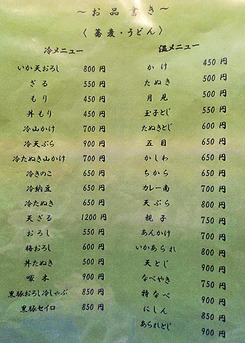 ～お品書き～
〈蕎麦・うどん〉
冷メニュー
いか天おろし 800円
ざる 550円
もり 450円
丼もり 450円
冷山かけ 700円
冷天ぷら 900円
冷たぬき 650円
冷たぬき山かけ 700円
冷きのこ 650円
冷納豆 650円
冷たぬき 650円
天ざる 1200円
おろし 550円
梅おろし 600円
丼たぬき 500円
啄木 900円
黒豚おろし冷しゃぶ 850円
黒豚セイロ 850円
温メニュー
かけ 450円
たぬき 500円
月見 500円
玉子とじ 550円
たぬきとじ 600円
五目 650円
かしわ 650円
ちから 650円
カレー南 700円
天ぷら 800円
親子 750円
あんかけ 700円
いかあられ 800円
天とじ 900円
なべやき 750円
特なべ 900円
にしん 850円
あられとじ 900円